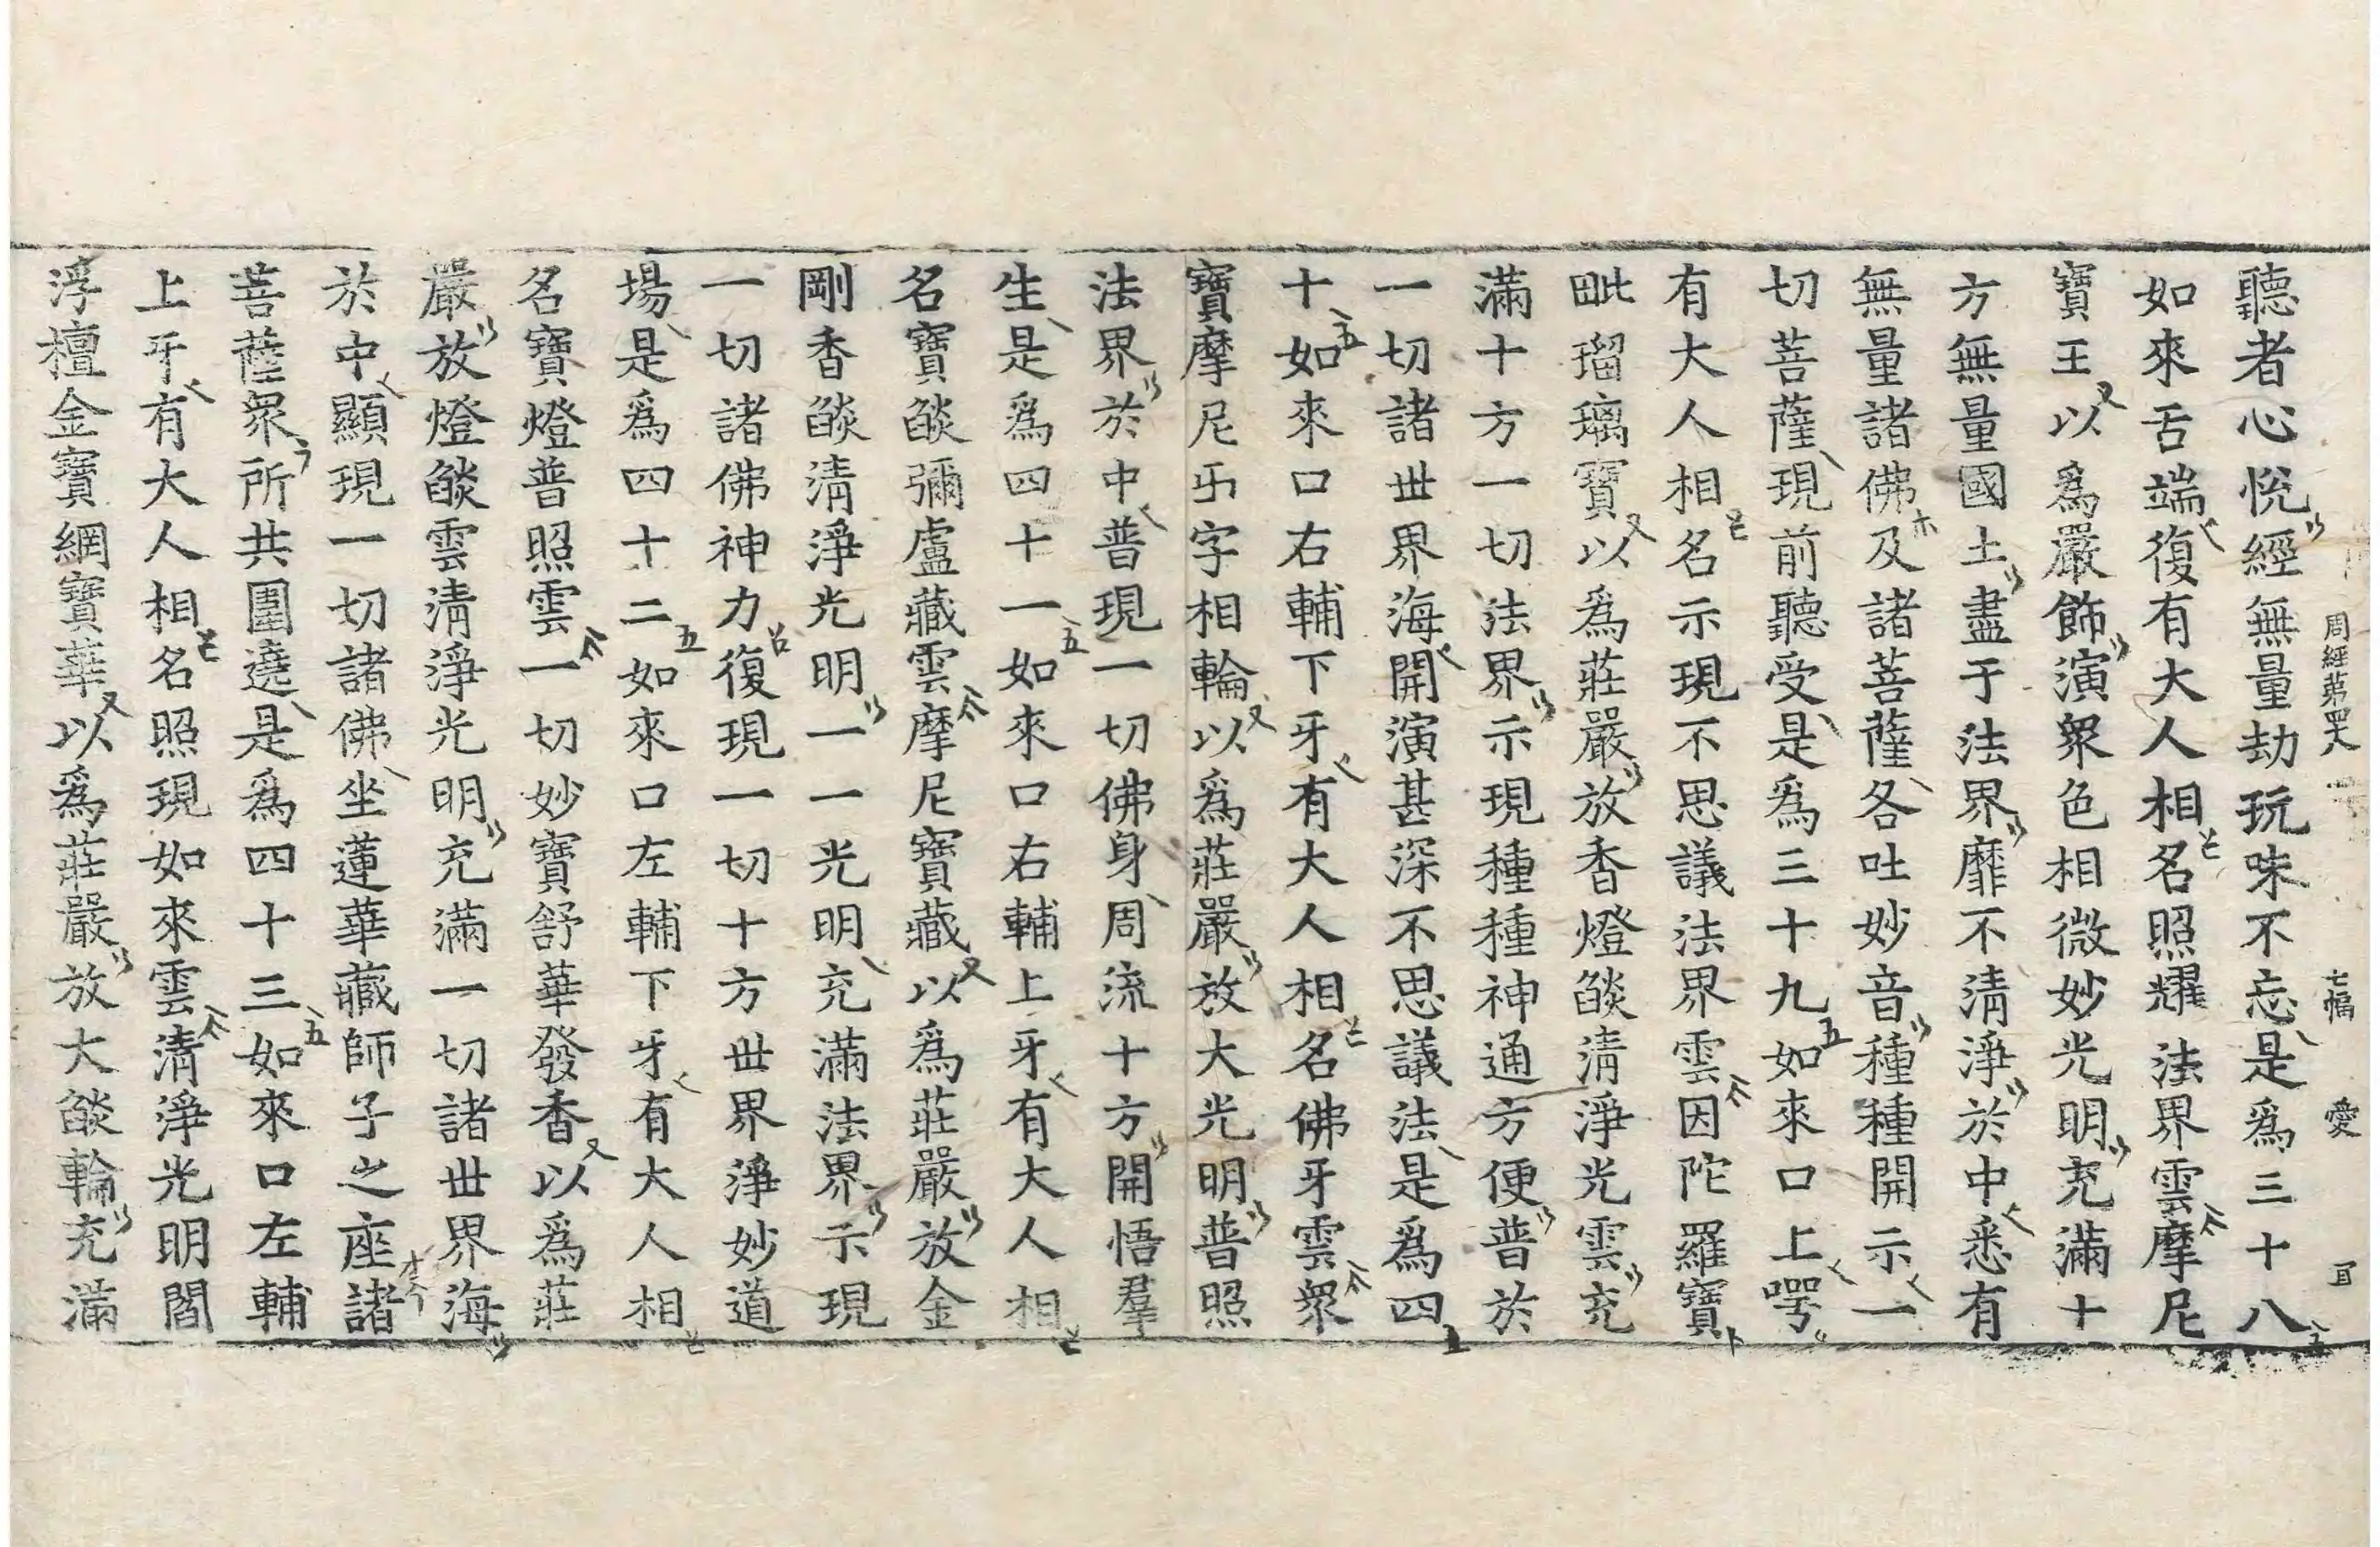 周經第四十八 七幅 愛
聽者心悅經無量劫玩味不忘是爲三十八
如來舌端復有大人相名照耀法界雲摩尼
寶王以爲嚴飾演衆色相微妙光明充滿十
方無量國土盡于法界靡不清淨於中悉有
無量諸佛及諸菩薩各吐妙音種種開示一
切菩薩現前聽受是爲三十九如來口上㗁
有大人相名示現不思議法界雲因陀羅寶
毗瑠璃寶以爲莊嚴放香燈燄清淨光雲充
滿十方一切法界示現種種神通方便普於
一切諸世界海開演甚深不思議法是爲四
十如來口右輔下牙有大人相名佛牙雲衆
寶摩尼卐字相輪以爲莊嚴放大光明普照
法界於中普現一切佛身周流十方開悟羣
生是爲四十一如來口右輔上牙有大人相
名寶燄彌盧藏雲摩尼寶藏以爲莊嚴放金
剛香燄清淨光明一一光明充滿法界示現
一切諸佛神力復現一切十方世界淨妙道
場是爲四十二如來口左輔下牙有大人相
名寶燈普照雲一切妙寶舒華發香以爲莊
嚴放燈燄雲清淨光明充滿一切諸世界海
於中顯現一切諸佛坐蓮華藏師子之座諸
菩薩衆所共圍遶是爲四十三如來口左輔
上牙有大人相名照現如來雲清淨光明閻
浮檀金寶網寶華以爲莊嚴放大燄輪充滿